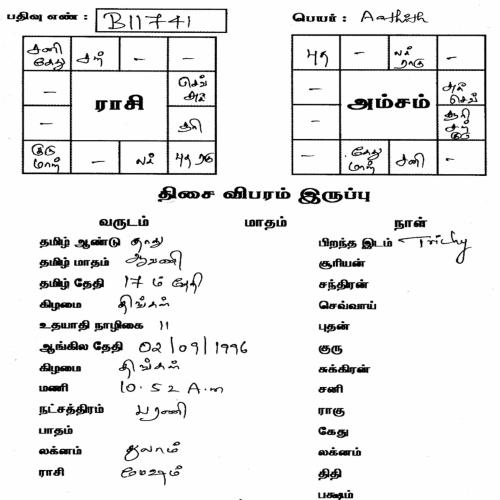 பதிவு எண் : B11741 பெயர் : Aathith
சனி கேது சந் - -
- செவ் சுக்
ராசி
- சூரி
குரு மாந் - லக் புத ராகு
புத - லக் ராகு -
- சுக் செவ்
அம்சம்
- சூரி சந் குரு
- கேது மாந் சனி -
திசை விபரம் இருப்பு
வருடம் மாதம் நாள்
தமிழ் ஆண்டு தாது பிறந்த இடம் Trichy
தமிழ் மாதம் ஆவணி சூரியன்
தமிழ் தேதி 17ம் தேதி சந்திரன்
கிழமை திங்கள் செவ்வாய்
உதயாதி நாழிகை 11 புதன்
ஆங்கில தேதி 02/09/1996 குரு
கிழமை திங்கள் சுக்கிரன்
மணி 10.52 A.m சனி
நட்சத்திரம் பரணி ராகு
பாதம் கேது
லக்னம் துலாம் லக்னம்
ராசி மேஷம் திதி
பக்ஷம்